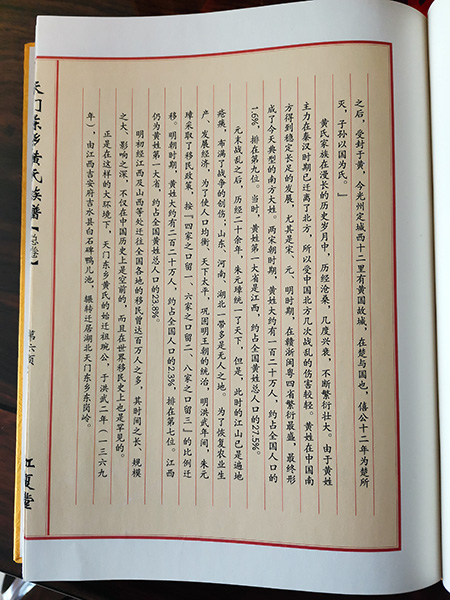 之后，受封于黄，今光州定城西十二里有黄国故城，在楚与国也，僖公十二年为楚所
灭，子孙以国为氏。」
黄氏家族在漫长的历史岁月中，历经沧桑，几度兴衰，不断繁衍壮大。由于黄姓
主力在秦汉时期已迁离了北方，所以受中国北方几次战乱的伤害较轻。黄姓在中国南
方得到稳定长足的发展，尤其是宋、元、明时期，在赣浙闽粤四省繁衍最盛，最终形
成了今天典型的南方大姓。两宋朝时期，黄姓大约有一百二十万人，约占全国人口的
1.6%，排在第九位。当时，黄姓第一大省是江西，约占全国黄姓总人口的27.5%。
元末战乱之后，历经二十余年，朱元璋统一了天下，但是，此时的江山已是遍地
疮痍，布满了战争的创伤；山东、河南、湖北一带多是无人之地。为了恢复农业生
产、发展经济，为了使人口均衡，天下太平，巩固明王朝的统治，明洪武年间，朱元
璋采取了移民政策，按「四家之口留一、六家之口留二、八家之口留三」的比例迁
移。明朝时期，黄姓大约有二百二十万人，约占全国人口的2.3%，排在第七位。江西
仍为黄姓第一大省，约占全国黄姓总人口的23.8%。
明初经江西及山西等处迁往全国各地的移民曾达百万人之多，其时间之长、规模
之大、影响之深，不仅在中国历史上是空前的，而且在世界移民史上也是罕见的。
正是在这样的大环境下，天门东乡黄氏的始迁祖琬公，于洪武二年（一三六九
年），由江西吉安府吉水县白石碑鸭儿池，辗转迁居湖北天门东乡东岗岭。
天门东乡黄氏族谱【总卷】
第六页
江夏堂